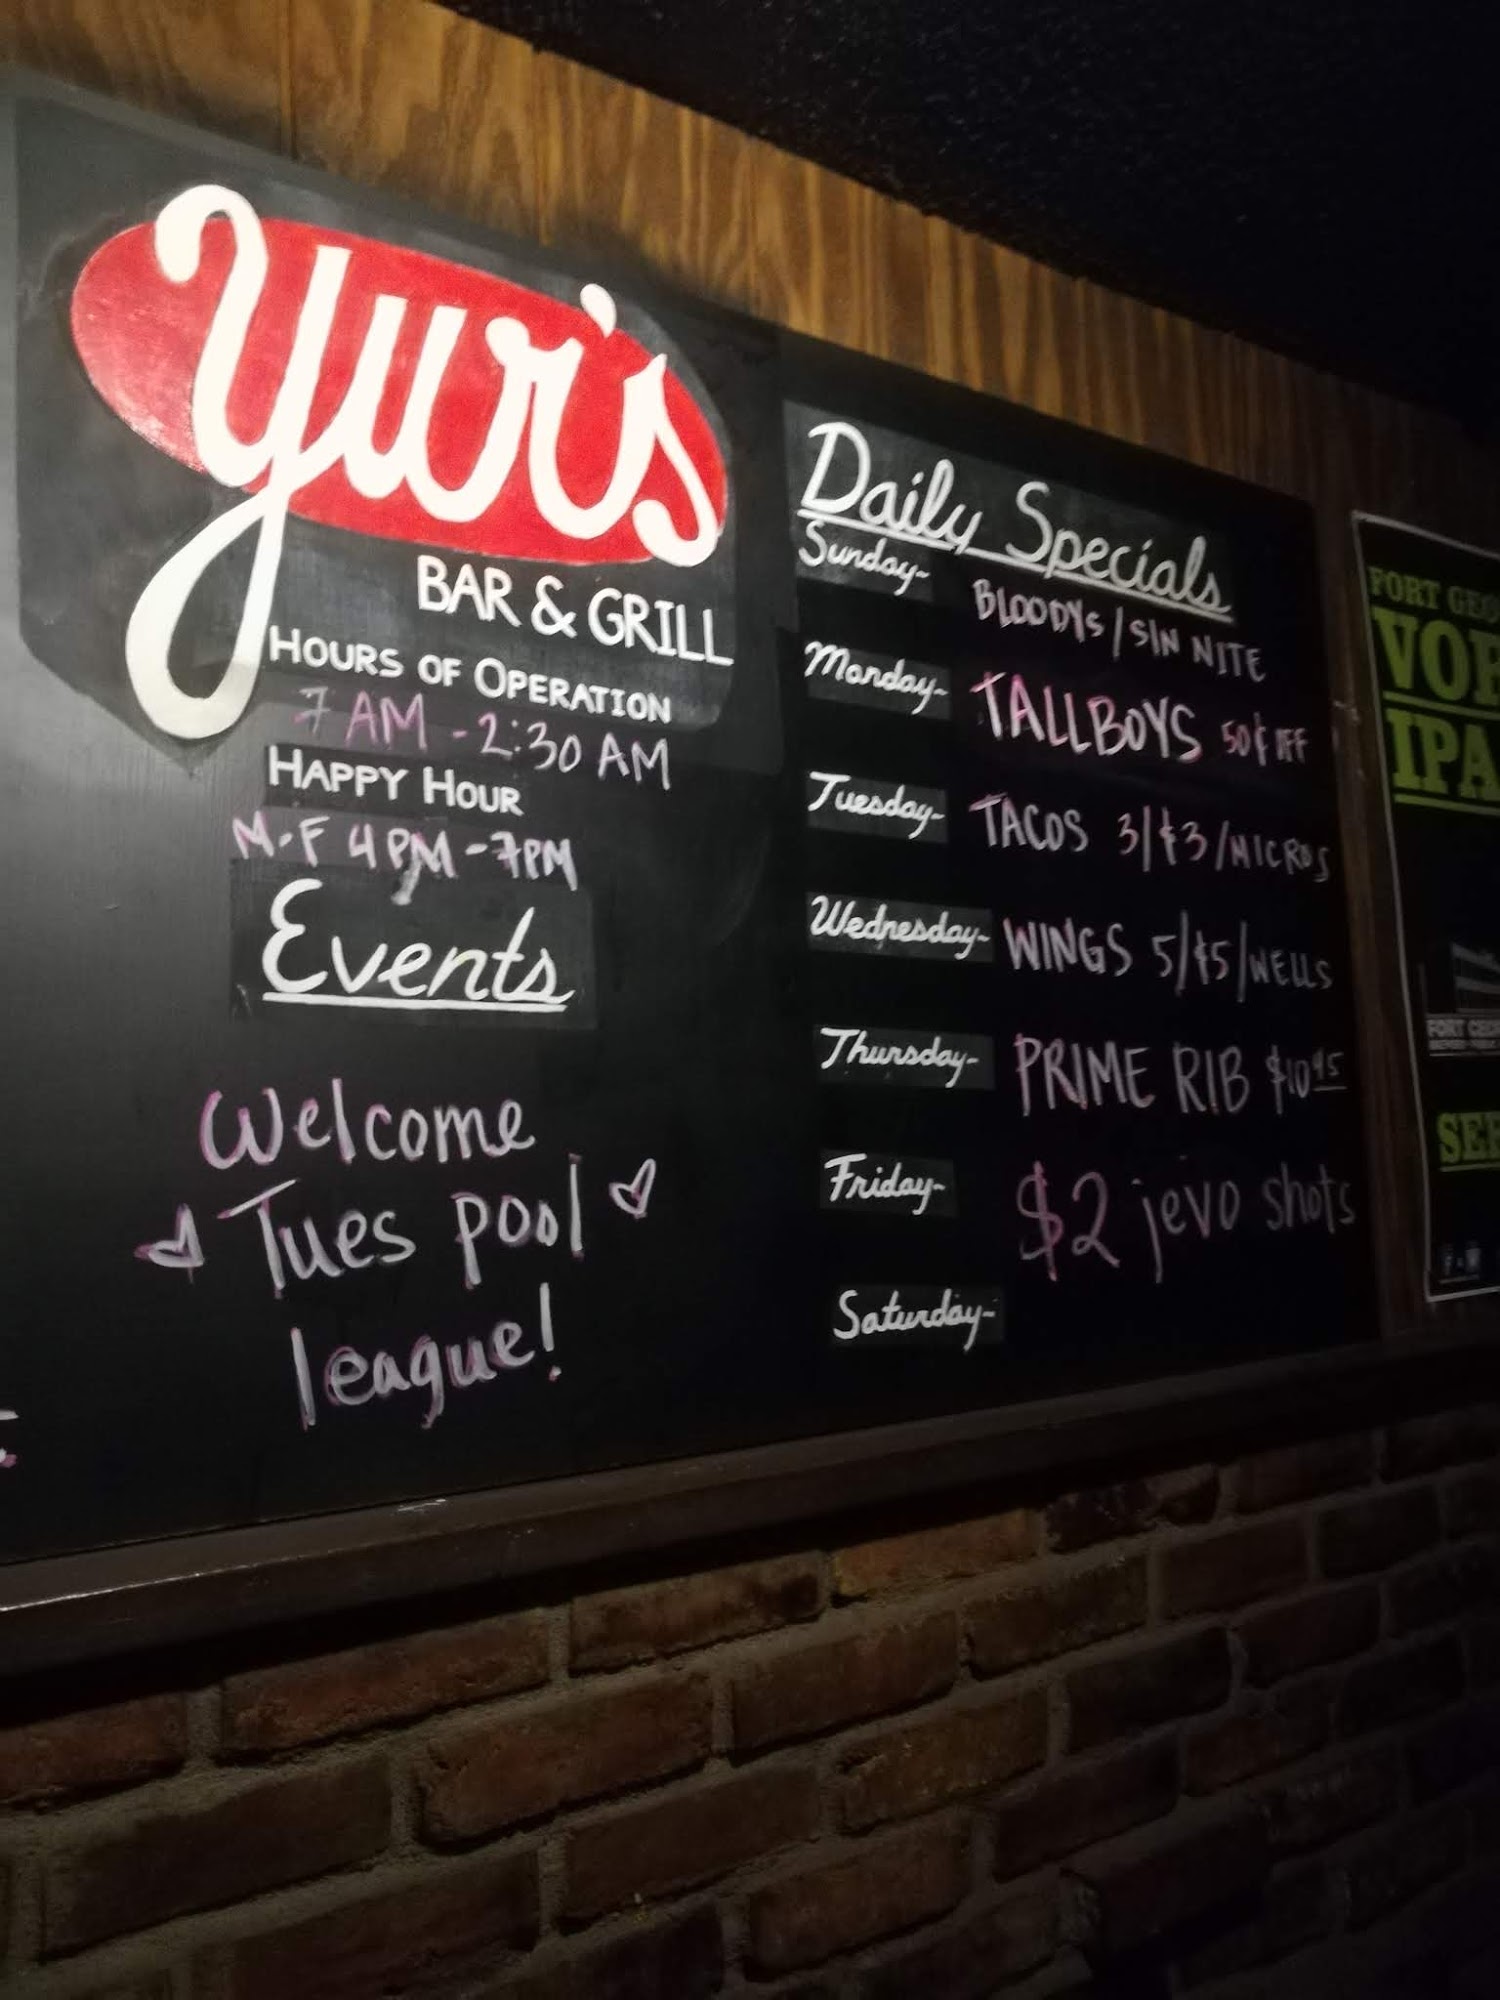 Yur's
BAR & GRILL
HOURS OF OPERATION
7 AM - 2:30 AM
HAPPY HOUR
M-F 4PM-7PM
Events
Welcome
Tues pool
league!
Daily Specials
Sunday- BLOODYs/SIN NITE
Monday- TALLBOYS 50¢ OFF
Tuesday- TACOS 3/$3/MICROS
Wednesday- WINGS 5/$5/WELLS
Thursday- PRIME RIB $10.95
Friday- $2 jevo shots
Saturday-
FORT GEO
VOR
IPA